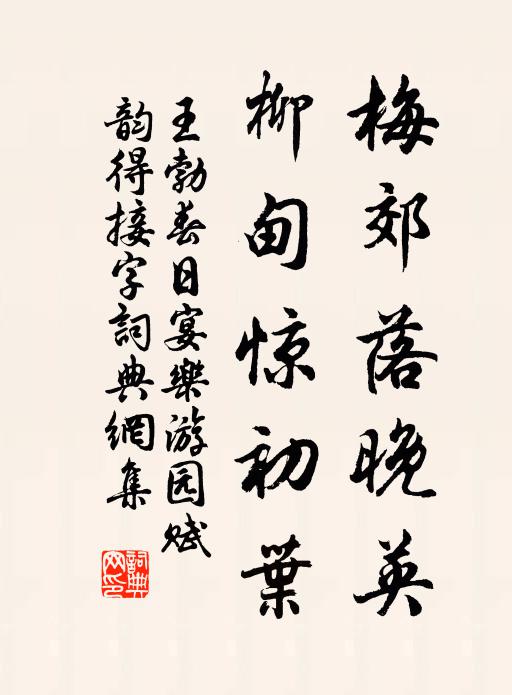 梅郊落晚英
柳甸惊初葉
王勃春日宴樂游园赋
韵得接字詞典網集
詞典網印